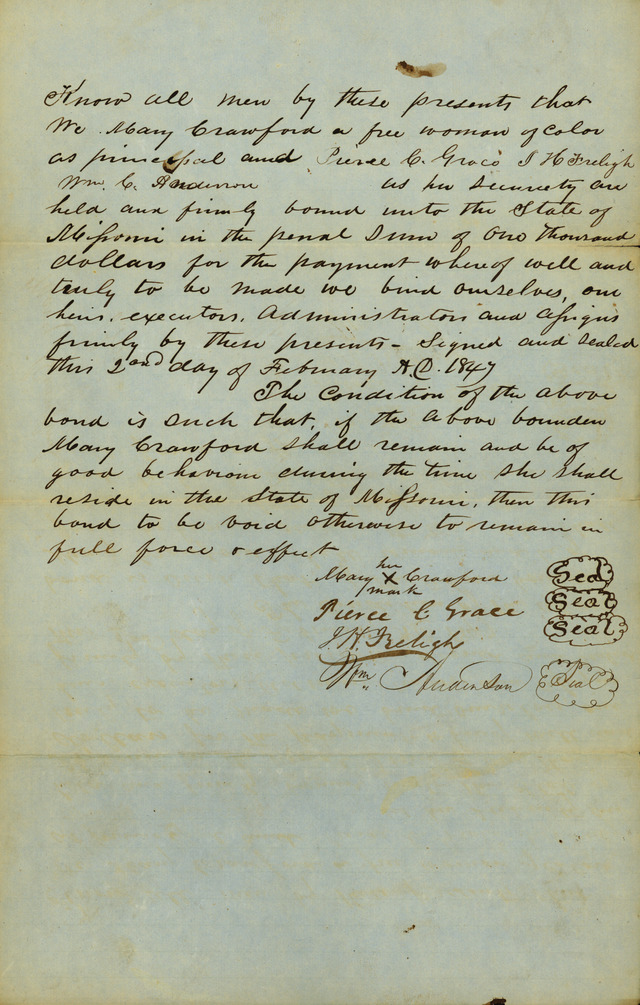 Know all men by these presents that
We Mary Crawford a free woman of Color
as principal and Pierce C. Grace J H Freligh
Wm. C. Anderson as her Security are
held and firmly bound unto the State of
Missouri in the penal Sum of One thousand
dollars for the payment whereof well and
truly to be made we bind ourselves, our
heirs, executors, Administrators and assigns
firmly by these presents - Signed and sealed
this 2nd day of February A.D. 1847
The Condition of the above
bond is such that, if the above bounden
Mary Crawford shall remain and be of
good behaviour during the time She Shall
reside in the State of Missouri, then this
bond to be void otherwise to remain in
full force & effect
her
Mary X Crawford Seal
mark
Pierce C Grace Seal
J. H. Freligh Seal
Wm. Anderson Seal